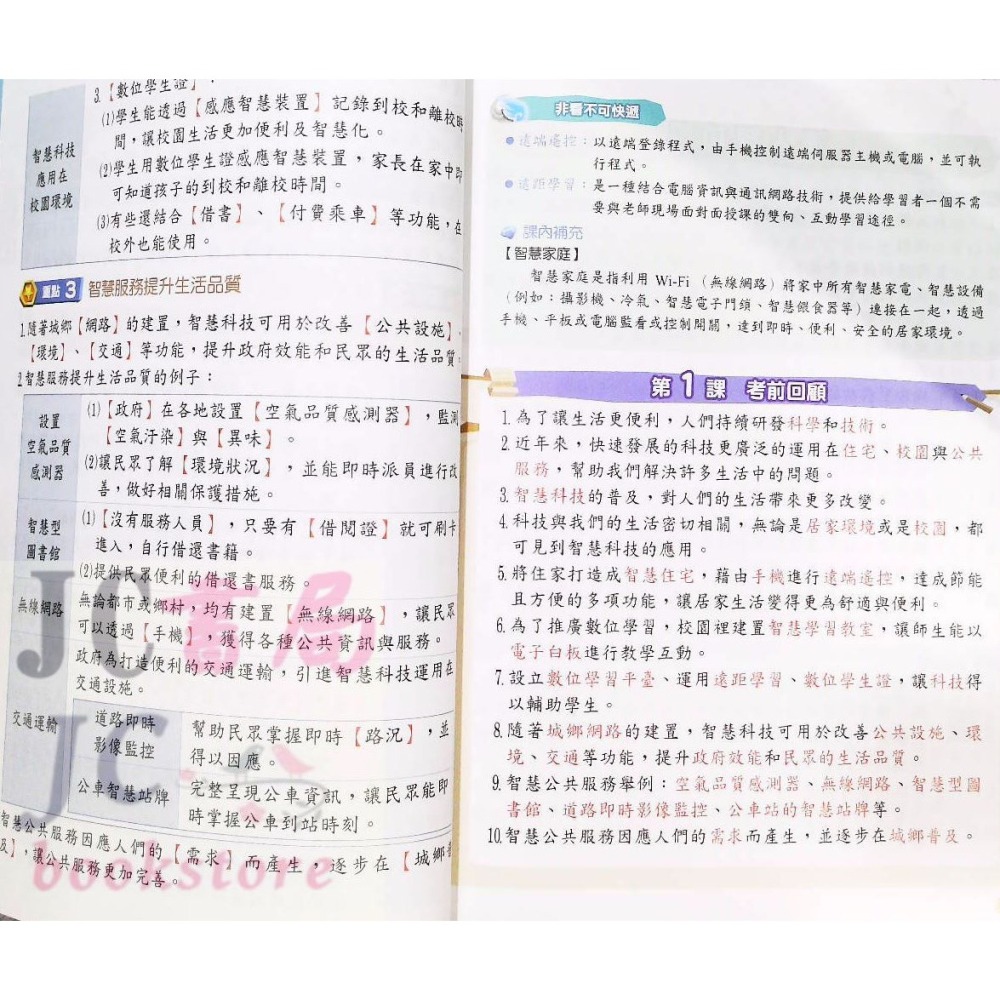 3.【數位學生證】：
⑴學生能透過【感應智慧裝置】記錄到校和離校時
間，讓校園生活更加便利及智慧化。
智慧科技
應用在
校園環境
⑵學生用數位學生證感應智慧裝置，家長在家中即
可知道孩子的到校和離校時間。
⑶有些還結合【借書】、【付費乘車】等功能，在
校外也能使用。
重點 3 智慧服務提升生活品質
1.隨著城鄉【網路】的建置，智慧科技可用於改善【公共設施】、
【環境】、【交通】等功能，提升政府效能和民眾的生活品質。
2.智慧服務提升生活品質的例子：
設置
空氣品質
感測器
⑴【政府】在各地設置【空氣品質感測器】，監測
【空氣汙染】與【異味】。
⑵讓民眾了解【環境狀況】，並能即時派員進行改
善，做好相關保護措施。
智慧型
圖書館
⑴【沒有服務人員】，只要有【借閱證】就可刷卡
進入，自行借還書籍。
⑵提供民眾便利的借還書服務。
無線網路
無論都市或鄉村，均有建置【無線網路】，讓民眾
可以透過【手機】，獲得各種公共資訊與服務。
交通運輸
政府為打造便利的交通運輸，引進智慧科技運用在
交通設施。
道路即時
影像監控
幫助民眾掌握即時【路況】，並
得以因應。
公車智慧站牌
完整呈現公車資訊，讓民眾能即
時掌握公車到站時刻。
智慧公共服務因應人們的【需求】而產生，逐步在【城鄉普
及】，讓公共服務更加完善。
JC書局
JC
bookstore
非看不可快遞
遠端遙控：以遠端登錄程式，由手機控制遠端伺服器主機或電腦，並可執
行程式。
遠距學習：是一種結合電腦資訊與通訊網路技術，提供給學習者一個不需
要與老師現場面對面授課的雙向、互動學習途徑。
課內補充
【智慧家庭】
智慧家庭是指利用 Wi-Fi（無線網路）將家中所有智慧家電、智慧設備
（例如：攝影機、冷氣、智慧電子門鎖、智慧餵食器等）連接在一起，透過
手機、平板或電腦監看或控制開關，達到即時、便利、安全的居家環境。
第1課 考前回顧
1.為了讓生活更便利，人們持續研發科學和技術。
2.近年來，快速發展的科技更廣泛的運用在住宅、校園與公共
服務，幫助我們解決許多生活中的問題。
3.智慧科技的普及，對人們的生活帶來更多改變。
4.科技與我們的生活密切相關，無論是居家環境或是校園，都
可見到智慧科技的應用。
5.將住家打造成智慧住宅，藉由手機進行遠端遙控，達成節能
且方便的多項功能，讓居家生活變得更為舒適與便利。
6.為了推廣數位學習，校園裡建置智慧學習教室，讓師生能以
電子白板進行教學互動。
7.設立數位學習平臺、運用遠距學習、數位學生證，讓科技得
以輔助學生。
8.隨著城鄉網路的建置，智慧科技可用於改善公共設施、環
境、交通等功能，提升政府效能和民眾的生活品質。
9.智慧公共服務舉例：空氣品質感測器、無線網路、智慧型圖
書館、道路即時影像監控、公車站的智慧站牌等。
10.智慧公共服務因應人們的需求而產生，並逐步在城鄉普及。